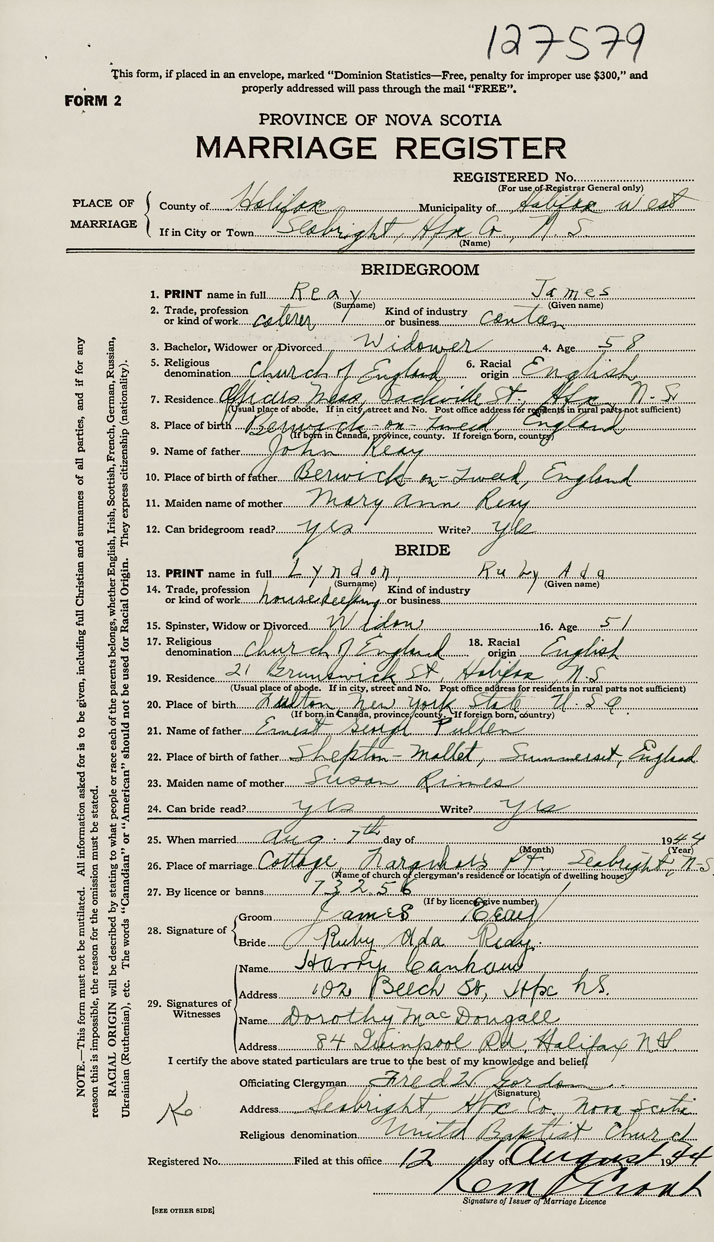 127579
This form, if placed in an envelope, marked “Dominion Statistics—Free, penalty for improper use $300,” and
properly addressed will pass through the mail “FREE”.
FORM 2
PROVINCE OF NOVA SCOTIA
MARRIAGE REGISTER
REGISTERED No.
(For use of Registrar General only)
PLACE OF MARRIAGE
County of Halifax Municipality of Halifax West
If in City or Town Seabright, Hfx Co, N.S.
(Name)
BRIDEGROOM
1. PRINT name in full Reay James
(Surname) (Given name)
2. Trade, profession or kind of work caterer Kind of industry or business
3. Bachelor, Widower or Divorced Widower 4. Age 58
5. Religious denomination Church of England 6. Racial origin English
7. Residence Officers Mess, Sackville St, Hfx, N.S.
(Usual place of abode. If in city, street and No. Post office address for residents in rural parts not sufficient)
8. Place of birth Berwick-on-Tweed, England
(If born in Canada, province, county. If foreign born, country)
9. Name of father John Reay
10. Place of birth of father Berwick on-Tweed, England
11. Maiden name of mother Mary Ann Reay
12. Can bridegroom read? yes Write? yes
BRIDE
13. PRINT name in full Lyndon, Ruby Ada
(Surname) (Given name)
14. Trade, profession or kind of work housekeeping Kind of industry or business
15. Spinster, Widow or Divorced Widow 16. Age 51
17. Religious denomination Church of England 18. Racial origin English
19. Residence 21 Brunswick St, Halifax, N.S.
(Usual place of abode. If in city, street and No. Post office address for residents in rural parts not sufficient)
20. Place of birth Fulton New York State U.S.A
(If born in Canada, province, county. If foreign born, country)
21. Name of father Ernest George Pullen
22. Place of birth of father Shepton-Mallet, Summerset, England
23. Maiden name of mother Susan Rimes
24. Can bride read? yes Write? yes
25. When married Aug. 7th day of 1944
(Month) (Year)
26. Place of marriage Cottage, Pt, Seabright, N.S.
(Name of church or clergyman's residence or location of dwelling house)
27. By licence or banns 73256
(If by licence give number)
28. Signature of
Groom James Reay
Bride Ruby Ada Reay.
29. Signatures of Witnesses
Name Harry
Address 102 Beech St, Hfx N.S.
Name Dorothy MacDougall
Address 84 Quinpool Rd, Halifax N.S.
I certify the above stated particulars are true to the best of my knowledge and belief.
Officiating Clergyman Fred W. Gordon
(Signature)
Address Seabright, Hfx Co, Nova Scotia
Religious denomination United Baptist Church
Registered No. Filed at this office 12 day of August 1944
Signature of Issuer of Marriage Licence
[SEE OTHER SIDE]
NOTE.—This form must not be mutilated. All information asked for is to be given, including full Christian and surnames of all parties, and if for any
reason this is impossible, the reason for the omission must be stated.
RACIAL ORIGIN will be described by stating to what people or race each of the parents belongs, whether English, Irish, Scottish, French, German, Russian,
Ukrainian (Ruthenian), etc. The words “Canadian” or “American” should not be used for Racial Origin. They express citizenship (nationality).